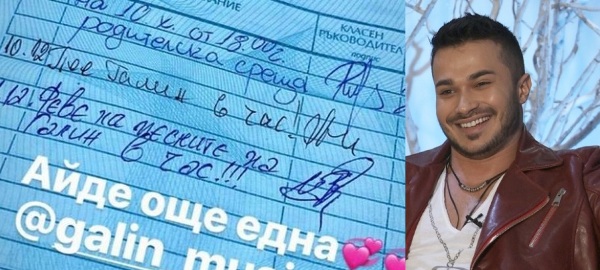 на 10 х. от 18.00ч.
родителска среща
КЛАСЕН
РЪКОВОДИТЕЛ
10.12 Пее Галин в час.
12 Реве на песните на
Галин в час!!!
Айде още една
@galin_music